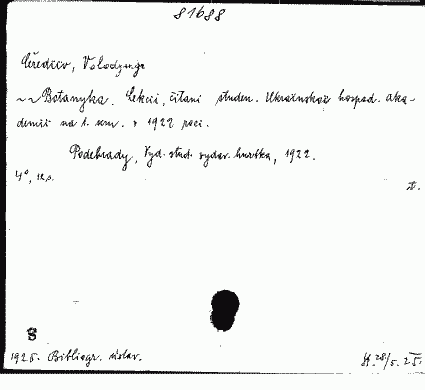 81688
Čeredïev, Volodymyr
~~Botanyka. Lekcii, čitani studen. Ukrainskoi hospod. aka-
demii na 1. sem. v 1922 roci.
Podebrady, Vyd. stud. vydav. hurtka, 1922.
4°,
zt.
8
1925. Bibliogr. ústav. H. 28/5. 25.